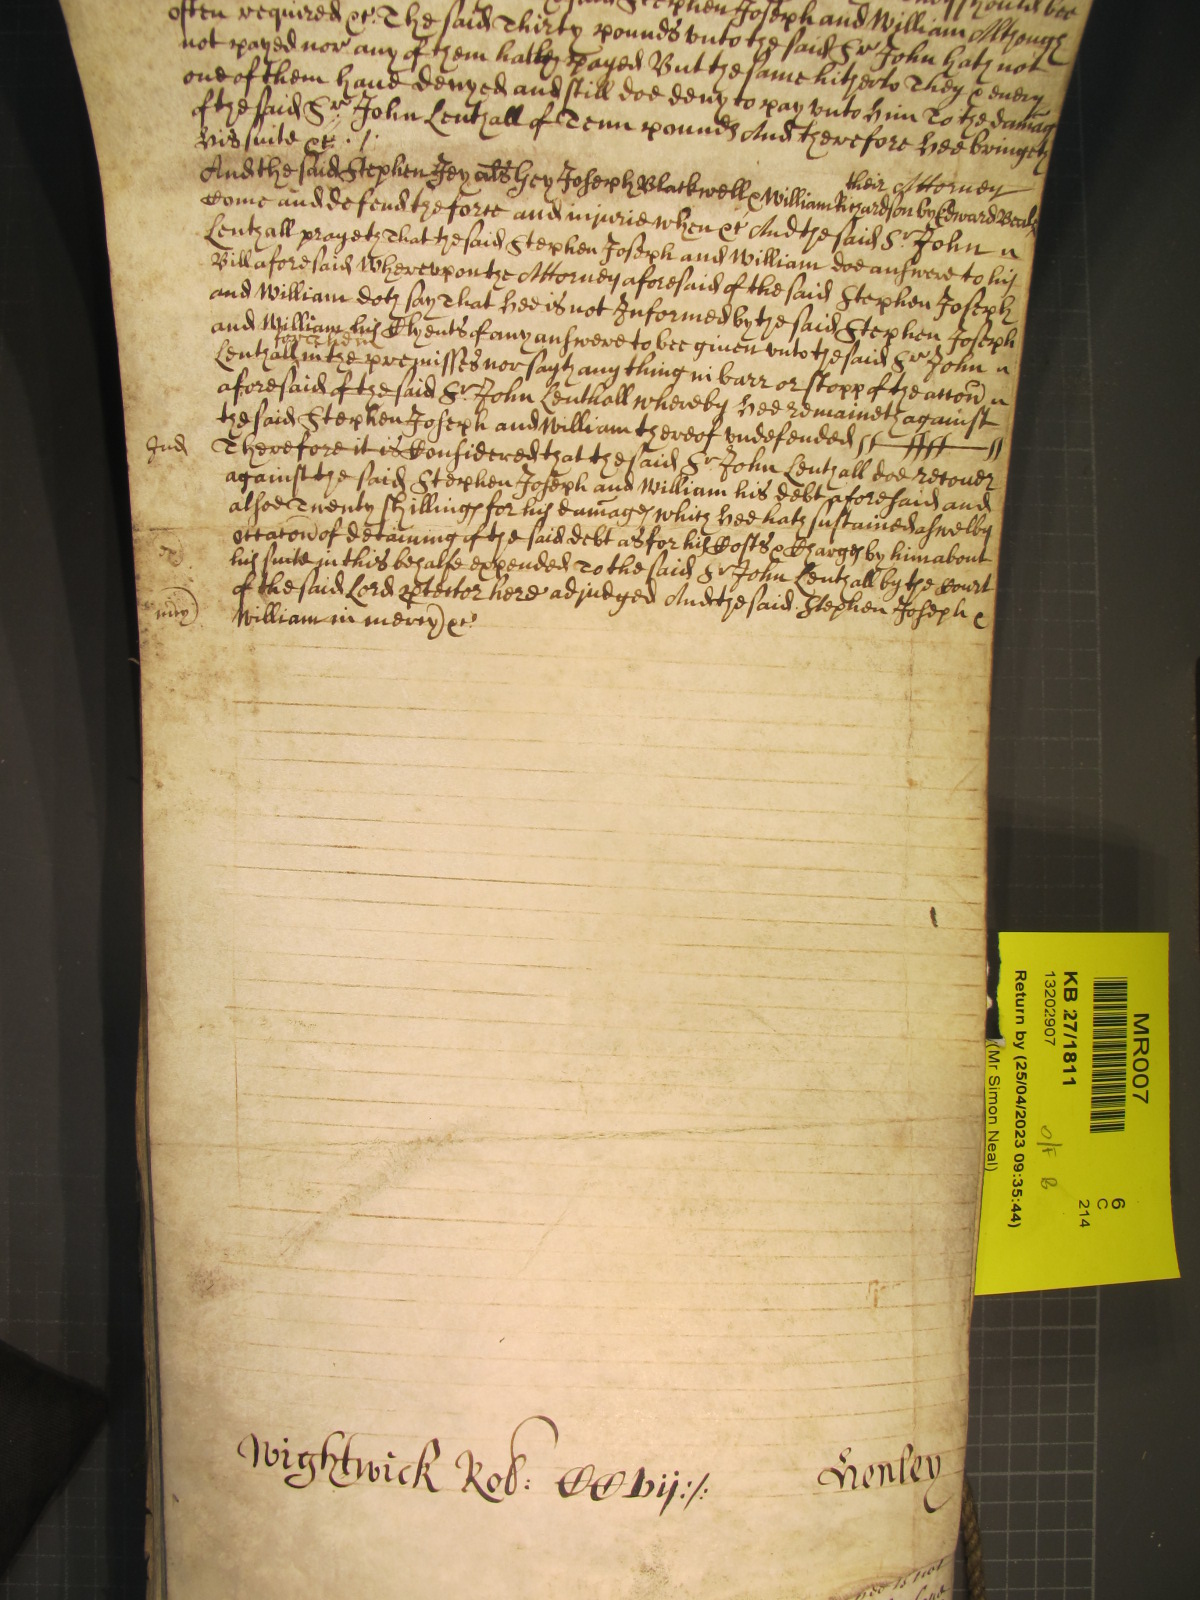 said Stephen Joseph and William Although
often required &c The said Thirty pounds vnto the said Sr John hath not
not payed nor any of them hath payed But the same hitherto They & euery
one of them haue denyed and still doe deny to pay vnto him To the damag
of the said Sr John Lenthall of Tenn pounds And therefore hee bringeth
his suite &c ./.
And the said Stephen Jey als Gey Joseph Blackwell & William Richardson by Edward Beale
their Attorney
Come and defend the force and injurie when &c And the said Sr John
Lenthall prayeth That the said Stephen Joseph and William doe answere to his
Bill aforesaid Wherevpon the Attorney aforesaid of the said Stephen Joseph
and William doth say That hee is not Informed by the said Stephen Joseph
and William his Clyents of any answere to bee giuen vnto the said Sr John
for them
Lenthall in the premisses nor sayth any thing in barr or stopp of the accon
aforesaid of the said Sr John Lenthall whereby hee remaineth against
the said Stephen Joseph and William thereof vndefended
Jud
Therefore it is Considered that the said Sr John Lenthall doe recouer
against the said Stephen Joseph and William his debt aforesaid and
alsoe Twenty shillings for his damages which hee hath susteined aswell by
occacon of detaining of the said debt as for his Costs & Charges by him about
his suite in this behalfe expended To the said Sr John Lenthall by the Court
of the said Lord Protector here adjudged And the said Stephen Joseph &
mcy
William in mercy &c
Wightwick Rob: CCvij:/:
Henley
hee is not
MR007
KB 27/1811
13202907
Return by (25/04/2023 09:35:44)
(Mr Simon Neal)
6
C
214